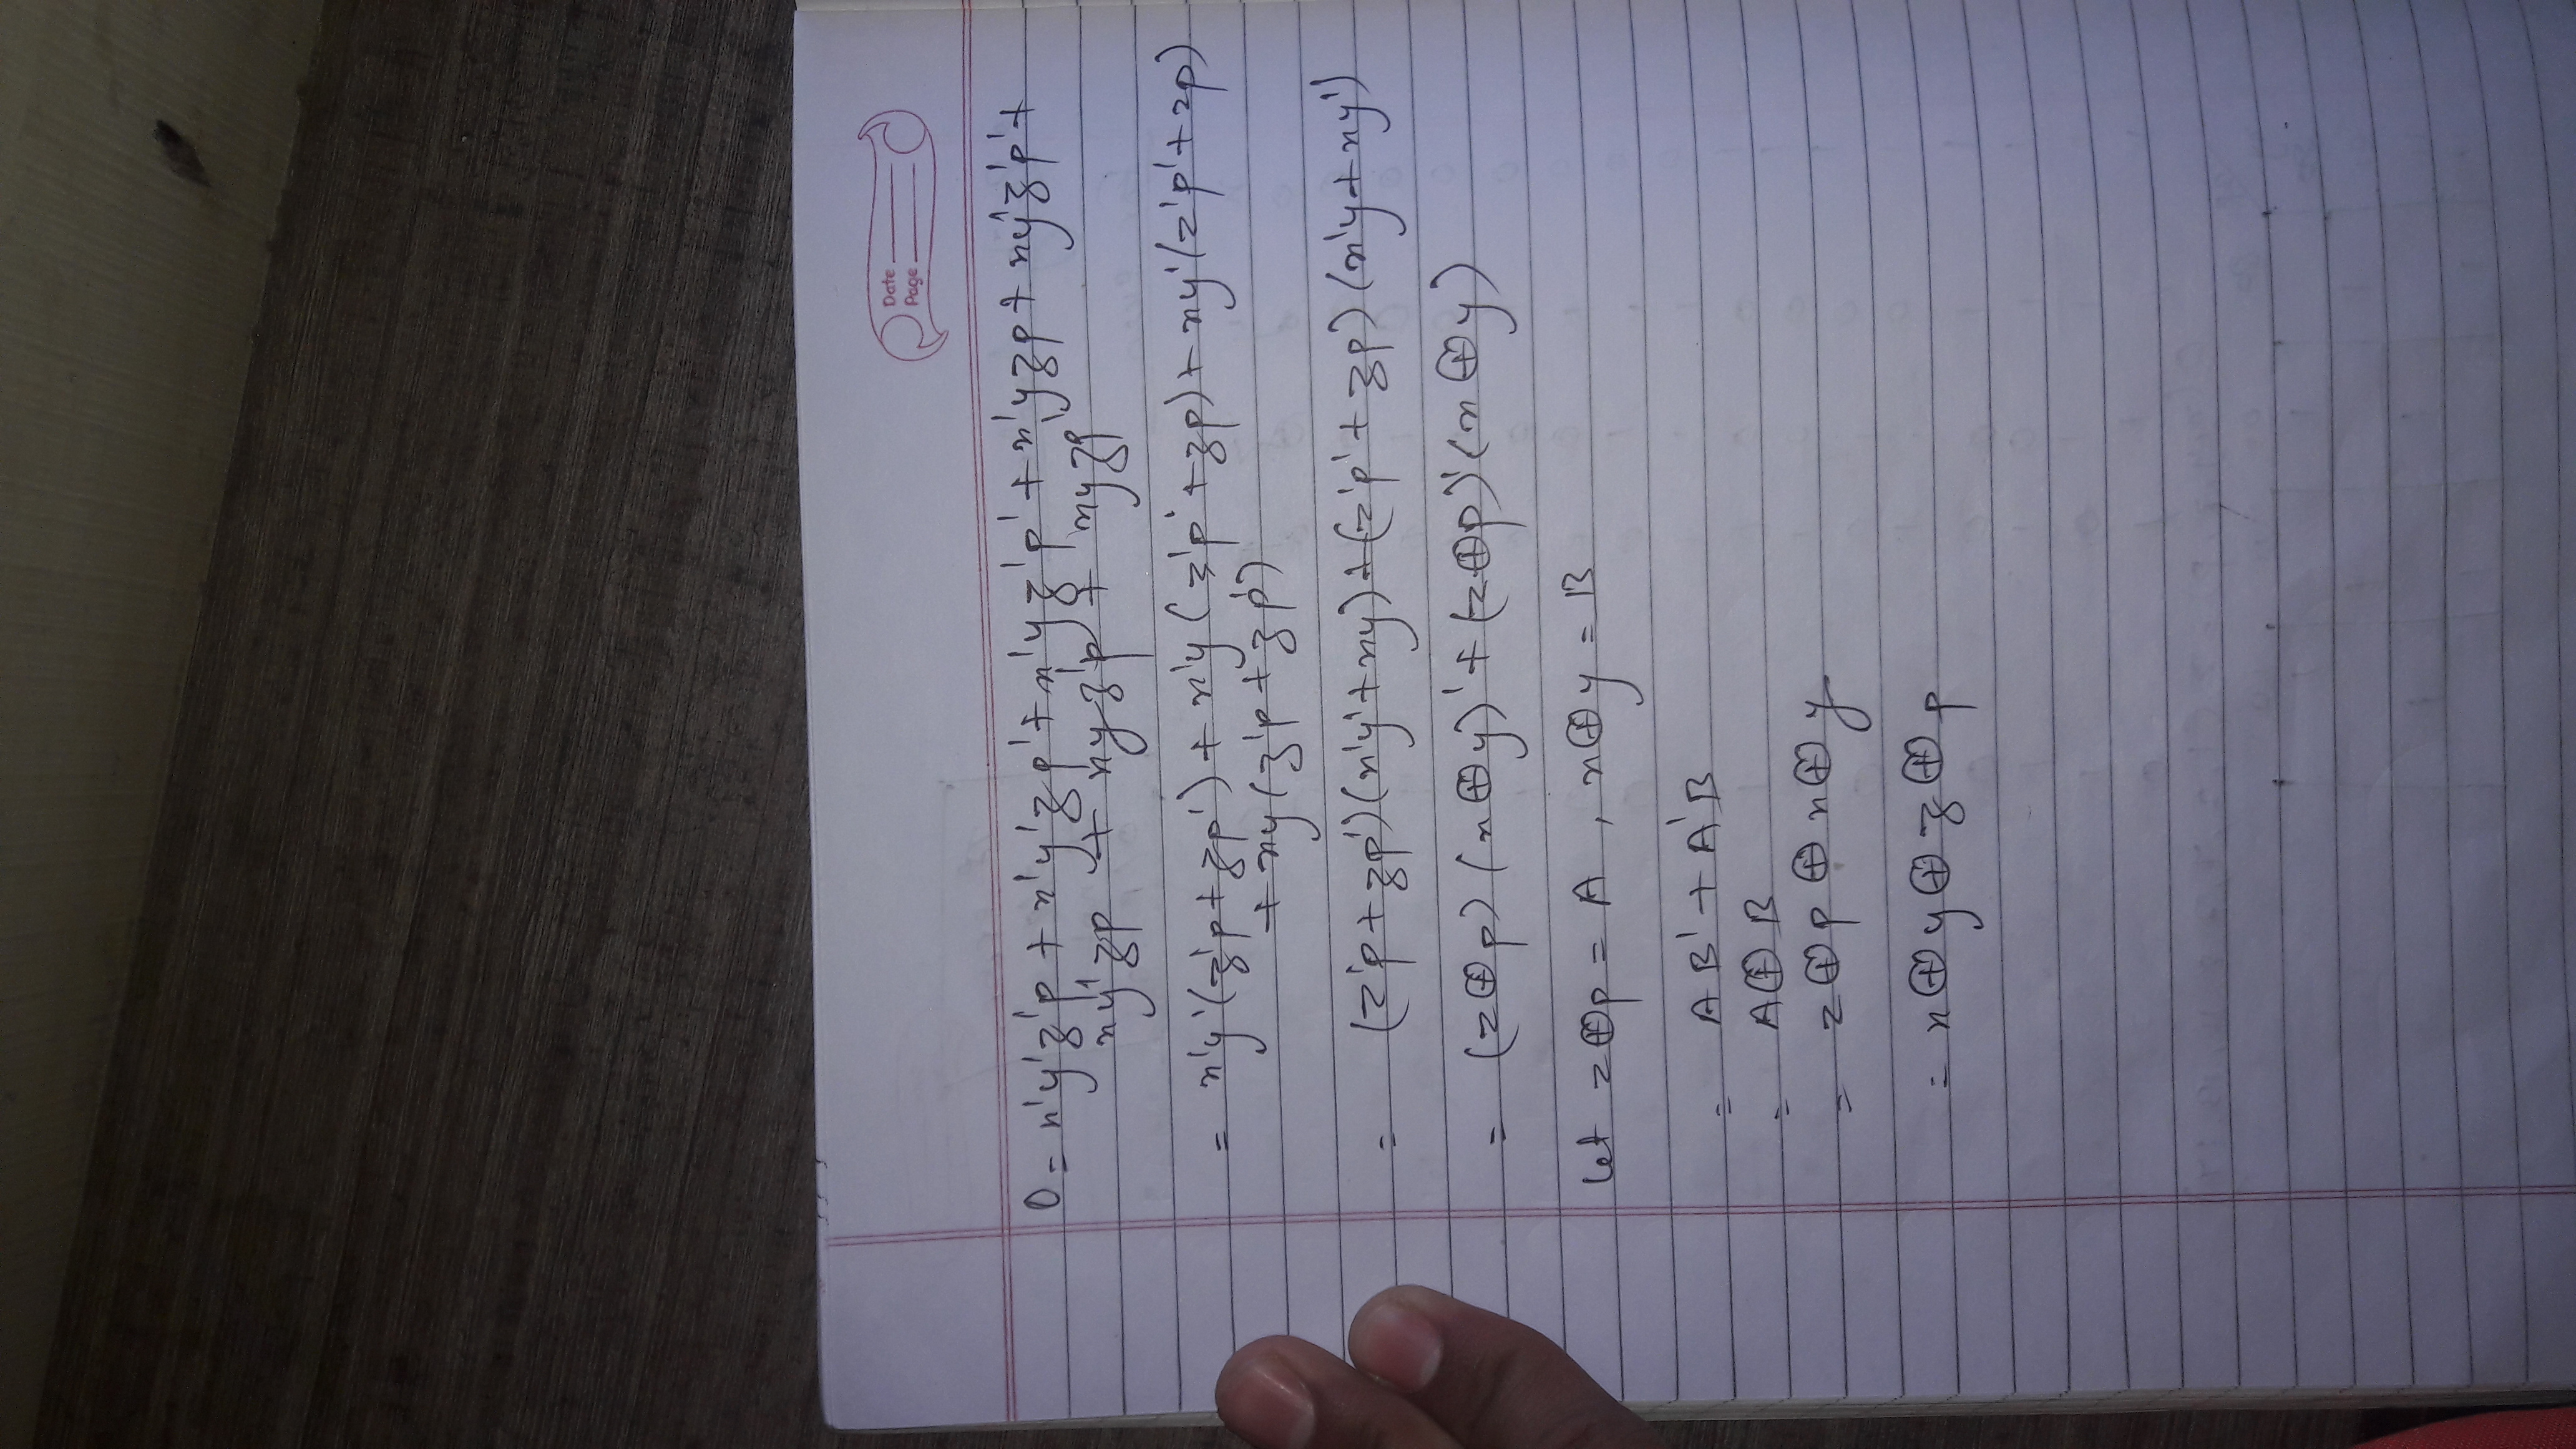 Date
Page
O = x'y'z'p + x'y'zp' + x'yz'p' + x'yzp + xy'z'p' +
xy'zp + xyz'p + xyzp'
= x'y'(z'p + zp') + x'y(z'p' + zp) + xy'(z'p' + zp)
+ xy(z'p + zp')
= (z'p + zp')(x'y' + xy) + (z'p' + zp)(x'y + xy')
= (z⊕p)(x⊕y)' + (z⊕p)'(x⊕y)
Let z⊕p = A, x⊕y = B
= AB' + A'B
= A⊕B
= z⊕p⊕x⊕y
= x⊕y⊕z⊕p